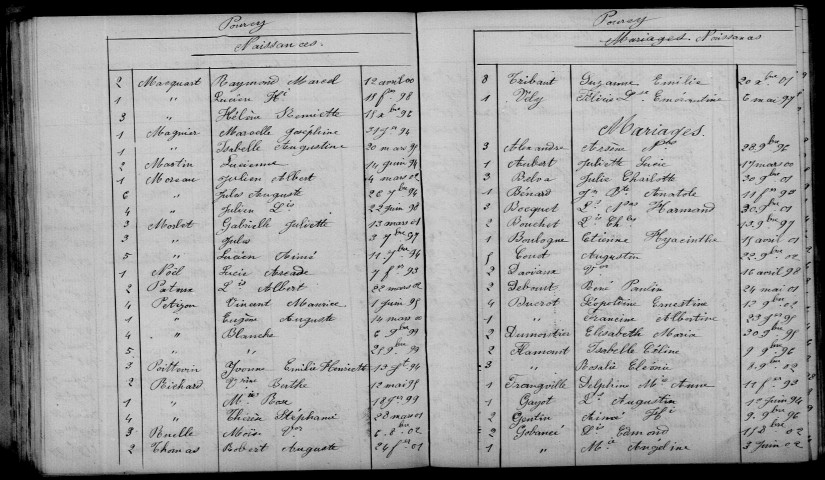 Pourcy
Naissances.
2 Macquart Raymond Marcel 12 avril 00
1 " Lucien Hi 11 fer 98
3 " Hélène Henriette 18 xbre 96
1 Magnier Marcelle Joséphine 94
1 " Isabelle Augustine 20 mars 95
2 Martin Lucienne 14 juin 94
1 Moreau Julien Albert 4 mars 02
6 " Jules Auguste 26 7bre 94
4 " Julien Lis 22 juin 98
2 Morlet Gabrielle Juliette 13 mars 01
3 " Jules 3 7bre 97
5 " Lucien Aimé 11 7bre 94
1 Noël Lucie 7 fer 93
2 Lis Albert 22 mars 02
4 Petizon Vincent Maurice 1 juin 95
1 " Eugène Auguste 14 mars 00
4 " Blanche 6 9bre 99
5 " " 21 9bre 99
3 Poittevin Yvonne Emilie Henriette 94
2 Richard Berthe 12 mai 95
1 " Mie Rose 99
4 " Stéphanie 28 mars 01
3 Ruelle Moïse 02
2 Thomas Robert Auguste 24 fer 01
Pourcy
Mariages. Naissances
3 Tribaut Suzanne Emilie 20 xbre 01
1 Vély Félicie Lse Emérantine 6 mai 97
Mariages.
3 Alexandre Arsène Nas 28 9bre 96
1 Aubert Juliette Lucie 17 mars 00
3 Belva Julie Charlotte 30 9bre 01
1 Bénard Jn Bte Anatole 11 fer 98
3 Bocquet Harmand 30 9bre 01
2 Bouchet Lis Chles 13 9bre 97
1 Boulogne Etienne Hyacinthe 18 avril 01
Augustin 22 9bre 02
2 16 avril 98
2 Debout René Paulin 24 mai 01
4 Ducrot Léopoldine Ernestine 12 9bre 02
1 " Francine Albertine
2 Dumortier Elisabeth Maria 30 9bre 95
2 Hamont Isabelle Céline 9 9bre 96
3 " Rosalie 8 9bre 02
1 Franqville Delphine Mie Anne 11 fer 93
1 Gayot Lis Augustin 12 juin 94
2 Gentin Aimé Hi 9 9bre 96
2 Gobancé Lis Edmond 02
1 " Mie Angeline 3 juin 02